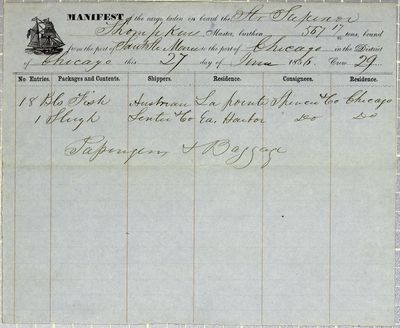 MANIFEST of the cargo laden on board the Str Superior
Thompkins Master, burthen 567 17 tons, bound
from the port of Sault Ste Marie to the port of Chicago in the District
of Chicago this 27 day of June 1856 Crew 29
No Entries. Packages and Contents. Shippers. Residence. Consignees. Residence.
18 Bls Fish Austrian La pointe Spencer & Co Chicago
1 Slugh Senter & Co Ea. Harbor Do Do
Pasengers & Baggage